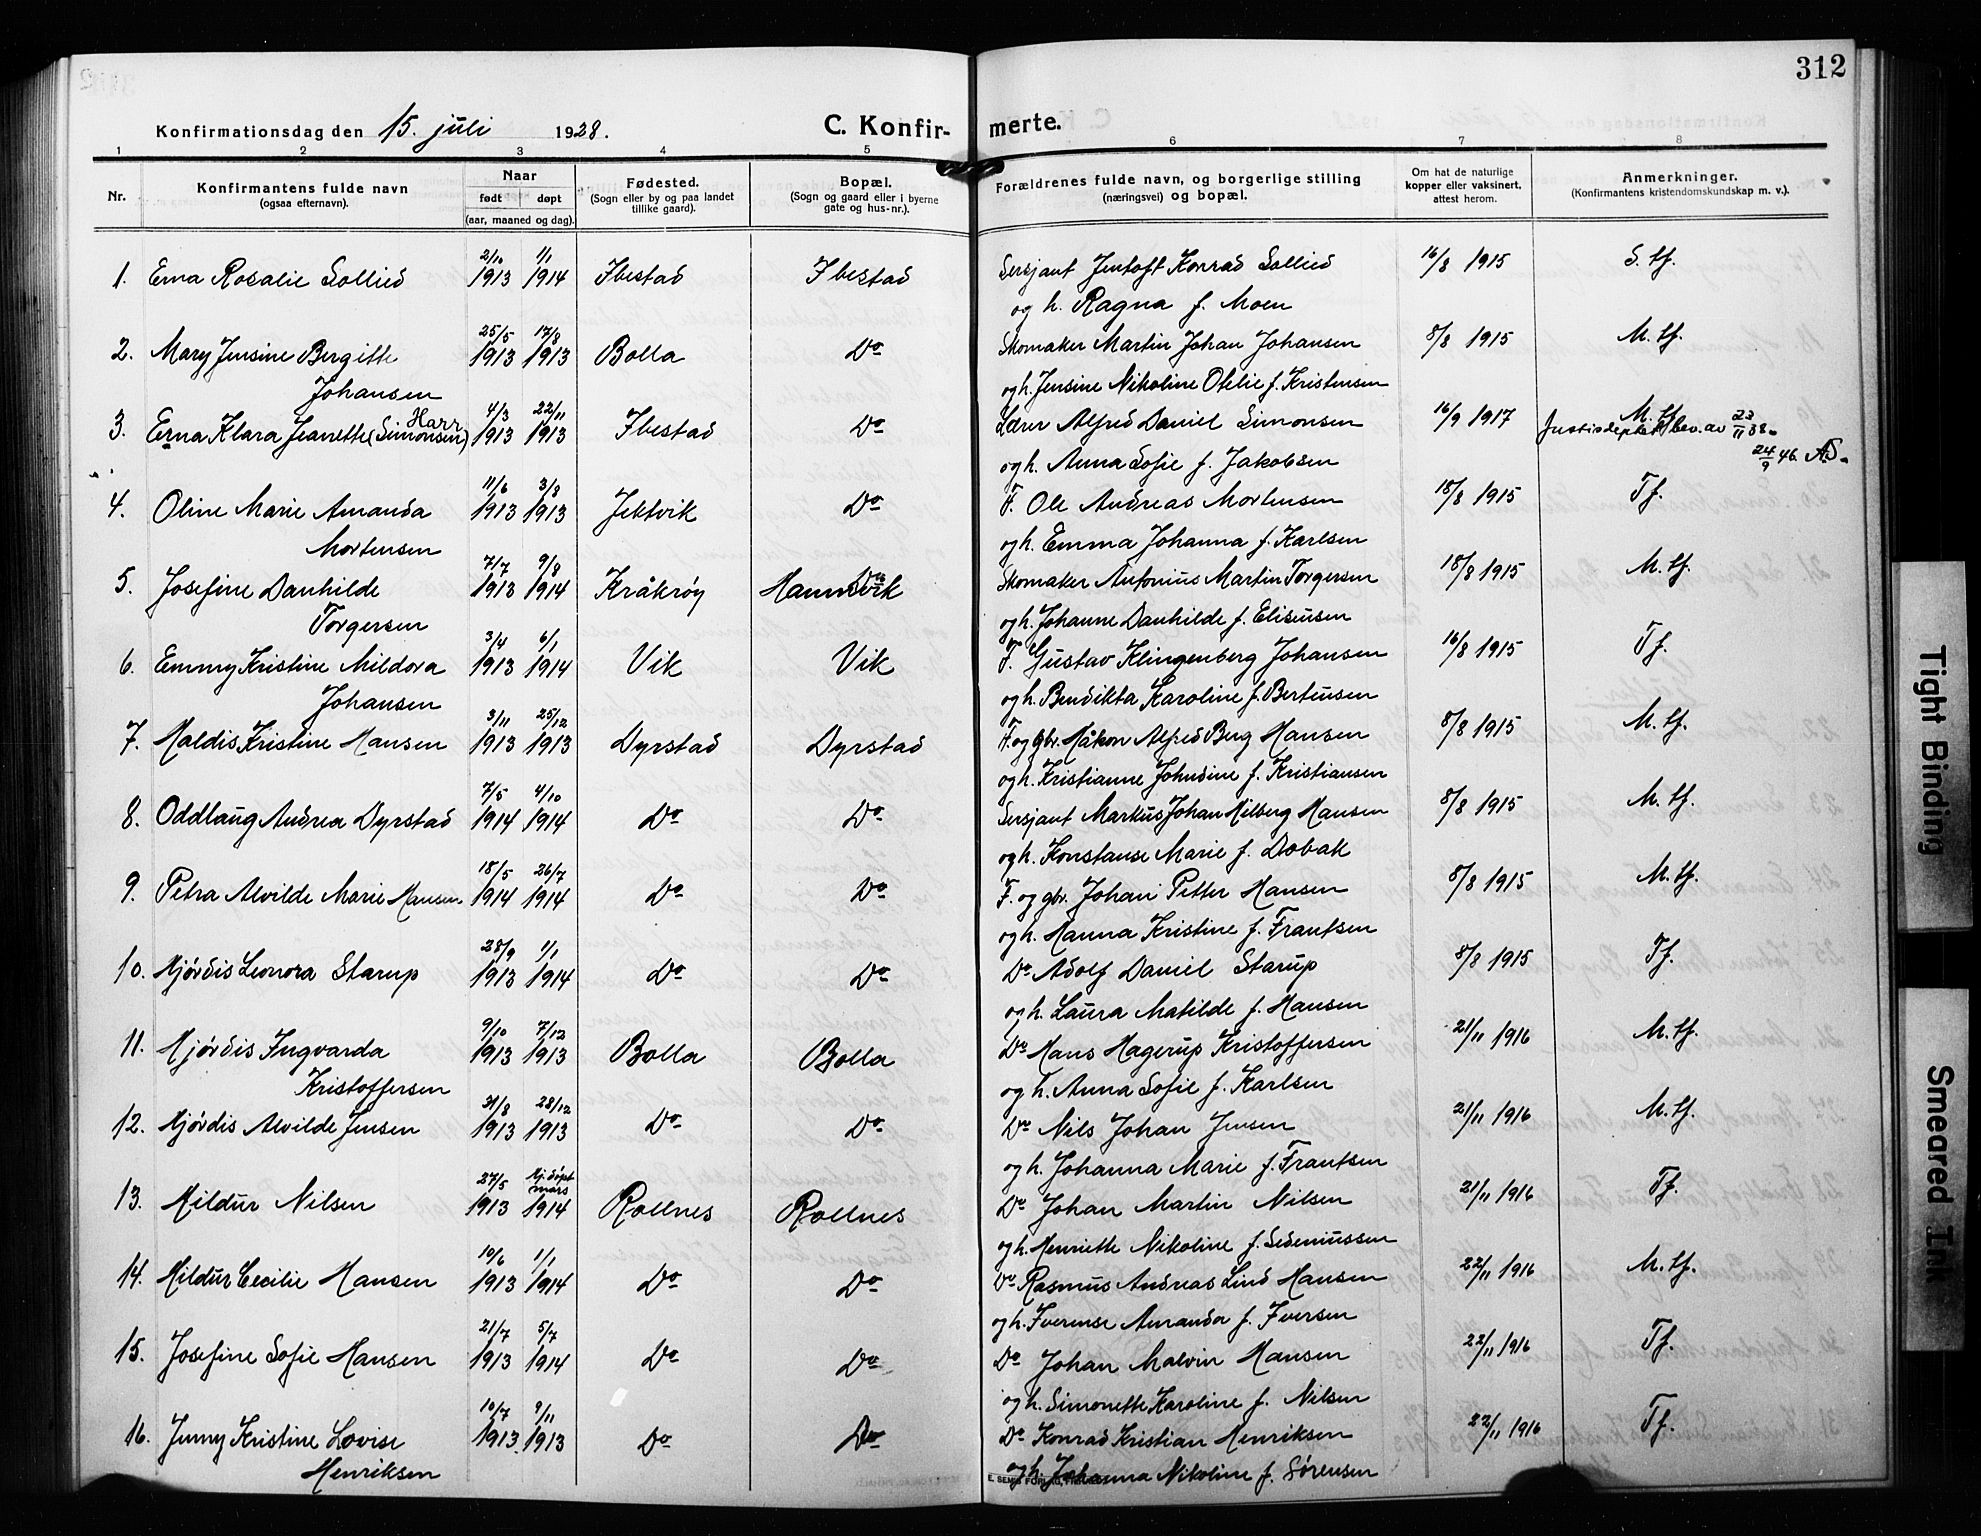 312
Konfirmationsdag den 15. juli 1928.
C. Konfir- merte.
1 2 3 4 5 6 7 8
Nr.
Konfirmantens fulde navn
(ogsaa efternavn).
Naar
født døpt
(aar, maaned og dag).
Fødested.
(Sogn eller by og paa landet
tillike gaard).
Bopæl.
(Sogn og gaard eller i byerne
gate og hus-nr.).
Forældrenes fulde navn, og borgerlige stilling
(næringsvei) og bopæl.
Om hat de naturlige
kopper eller vaksinert,
attest herom.
Anmerkninger.
(Konfirmantens kristendomskundskap m. v.).
2/10 1/1
1. Erna Rosalie Sollied 1913 1914 Ibestad Ibestad Sersjant Jentoft Konrad Sollied 16/8 1915 S. tf.
og h. Ragna f. Moen
25/5 17/8
2. Mary Jensine Bergitte 1913 1913 Bolla Do Skomaker Martin Johan Johansen 8/8 1915 M. tf.
Johansen og h. Jensine Nikoline Otelie f. Kristensen
Harr 4/3 22/11
3. Erna Klara Jeanette (Simonsen) 1913 1913 Ibestad Do Lærer Alfred Daniel Simonsen 16/9 1917 M. tf.
Justisdeptet bev. av 23/11 38.
24/9 46. AS.
og h. Anna Sofie f. Jakobsen
11/6 3/8
4. Oline Marie Amanda 1913 1913 Jektvik Do F. Ole Andreas Mortensen 18/8 1915 Tf.
Mortensen og h. Emma Johanna f. Karlsen
7/7 9/8
5. Josefine Danhilde 1913 1914 Kråkrøy Hamnvik Skomaker Antonius Martin Torgersen 18/8 1915 M. tf.
Torgersen og h. Johanne Danhilde f. Eliseusen
3/4 6/1
6. Emmy Kristine Mildora 1913 1914 Vik Vik F. Gustav Klingenberg Johansen 16/8 1915 Tf.
Johansen og h. Bendikta Karoline f. Berteusen
3/11 25/12
7. Haldis Kristine Hansen 1913 1913 Dyrstad Dyrstad F. og gbr. Håkon Alfred Berg Hansen 8/8 1915 M. tf.
og h. Kristianne Johndine f. Kristiansen
7/5 4/10
8. Oddlaug Andrea Dyrstad 1914 1914 Do Do Sersjant Markus Johan Hilberg Hansen 8/8 1915 M. tf.
og h. Konstanse Marie f. Dobak
18/5 26/7
9. Petra Alvilde Marie Hansen 1914 1914 Do Do F. og gbr. Johan Petter Hansen 8/8 1915 M. tf.
og h. Hanna Kristine f. Frantsen
28/9 1/1
10. Hjørdis Leonora Starup 1913 1914 Do Do Do Adolf Daniel Starup 8/8 1915 Tf.
og h. Laura Matilde f. Hansen
9/10 7/12
11. Hjørdis Ingvarda 1913 1913 Bolla Bolla Do Hans Hagerup Kristoffersen 21/11 1916 M. tf.
Kristoffersen og h. Anna Sofie f. Karlsen
31/8 28/12
12. Hjørdis Alvilde Jensen 1913 1913 Do Do Do Nils Johan Jensen 21/11 1916 M. tf.
og h. Johanna Marie f. Frantsen
27/5 Hj. døpt
mars
13. Hildur Nilsen 1913 1914 Rollnes Rollnes Do Johan Martin Nilsen 21/11 1916 Tf.
og h. Henriette Nikoline f. Sedeniussen
10/6 1/1
14. Hildur Cecilie Hansen 1913 1914 Do Do Do Rasmus Andreas Lind Hansen 22/11 1916 M. tf.
og h. Iverense Amanda f. Iversen
21/7 5/7
15. Josefine Sofie Hansen 1913 1914 Do Do Do Johan Malvin Hansen 22/11 1916 Tf.
og h. Simonette Karoline f. Nilsen
10/7 9/11
16. Jenny Kristine Lovise 1913 1913 Do Do Do Konrad Kristian Henriksen 22/11 1916 Tf.
Henriksen og h. Johanna Nikoline f. Sørensen
Tight Binding
Smeared Ink